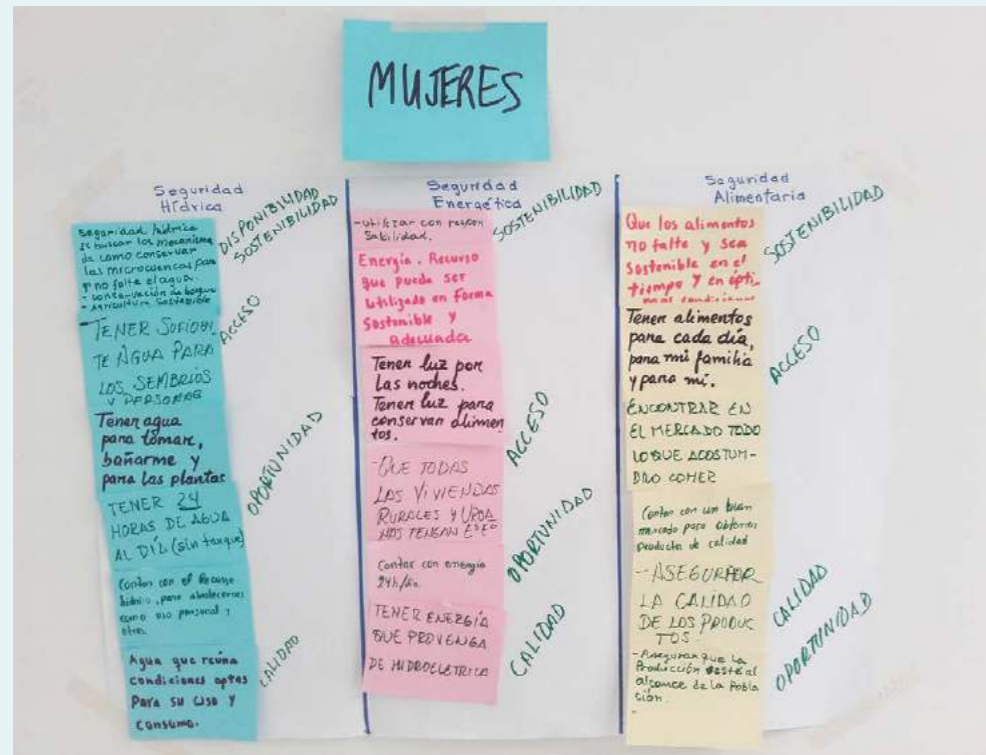 MUJERES
Seguridad
Hídrica
DISPONIBILIDAD
SOSTENIBILIDAD
Seguridad hídrica
es buscar los mecanismos
de como conservar
las microcuencas para
q' no falte el agua.
- conservación de bosque
- Agricultura Sostenible
ACCESO
TENER SUFICIEN
TE AGUA PARA
LOS SEMBRIOS
Y PERSONAS
Tener agua
para tomar,
bañarme y
para las plantas
OPORTUNIDAD
TENER 24
HORAS DE AGUA
AL DÍA (sin tanque)
Contar con el Recurso
hídrico, para abastecernos
como uso personal y
otros
CALIDAD
Agua que reúna
condiciones aptas
Para su uso y
Consumo.
Seguridad
Energética
SOSTENIBILIDAD
- utilizar con respon
sabilidad.
Energía. Recurso
que pueda ser
utilizado en forma
Sostenible y
adecuada
Tener luz por
las noches.
Tener luz para
conservar alimen
tos.
ACCESO
- QUE TODAS
LAS VIVIENDAS
RURALES Y
TENGAN
OPORTUNIDAD
Contar con energía
24h/
CALIDAD
TENER ENERGÍA
QUE PROVENGA
DE HIDROELETRICA
Seguridad
Alimentaria
SOSTENIBILIDAD
Que los alimentos
no falte y sea
Sostenible en el
tiempo y en ópti
mas condiciones
ACCESO
Tener alimentos
para cada día,
para mi familia
y para mí.
ENCONTRAR EN
EL MERCADO TODO
LO QUE ACOSTUM-
BRO COMER
Contar con un buen
mercado para obtener
producto de calidad
CALIDAD
- ASEGURAR
LA CALIDAD
DE LOS PRODUC
TOS.
OPORTUNIDAD
- Aseguran que la
Producción esté al
alcance de la Pobla
ción.
-